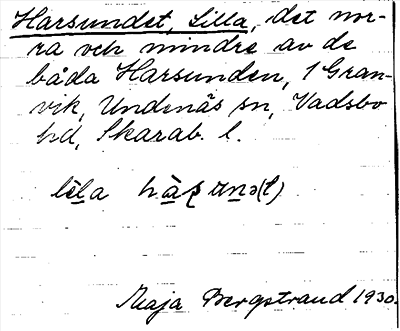 Harsundet, Lilla, det nor-
ra och mindre av de
båda Harsunden, 1 Gran-
vik, Undenäs sn, Vadsbo
hd, Skarab. l.
Maja Bergstrand 1930.